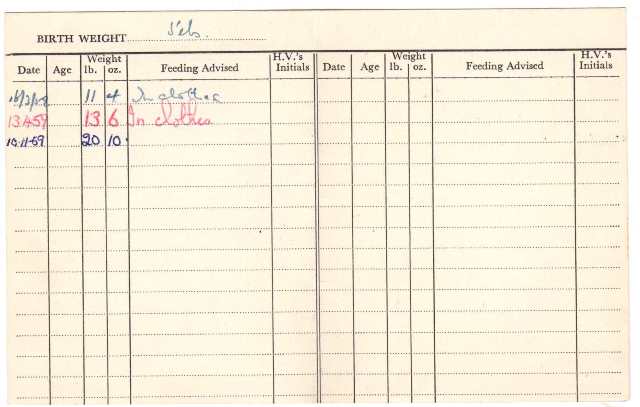 BIRTH WEIGHT
Weight H.V.'s Weight H.V.'s
Date Age lb. oz. Feeding Advised Initials Date Age lb. oz. Feeding Advised Initials
11 4 In clothes
13.4.59 13 6 In clothes
10.11.59 20 10